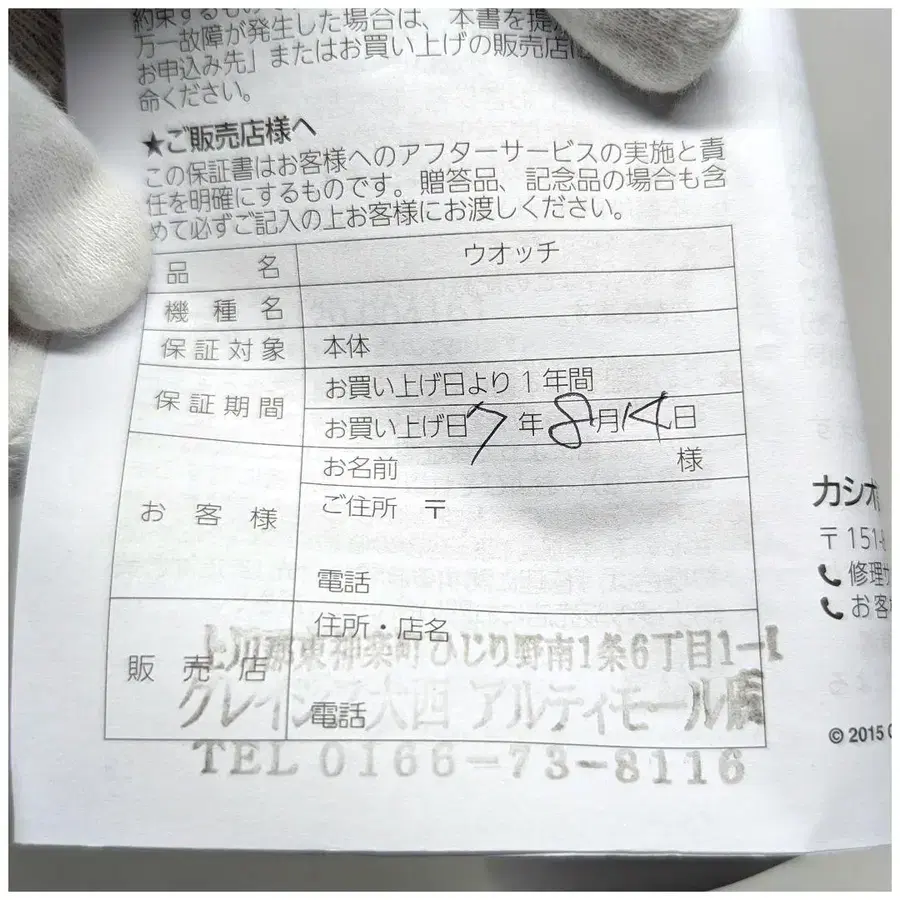 約束するもので
万一故障が発生した場合は、本書を提
お申込み先」またはお買い上げの販売店に
命ください。
★ご販売店様へ
この保証書はお客様へのアフターサービスの実施と責
任を明確にするものです。贈答品、記念品の場合も含
めて必ずご記入の上お客様にお渡しください。
品名 ウオッチ
機種名
保証対象 本体
保証期間 お買い上げ日より1年間
お買い上げ日 7年8月14日
お客様 お名前 様
ご住所 〒
電話
販売店 住所・店名
上川郡東神楽町ひじり野南1条6丁目1-1
グレイシス大西 アルティモール店
電話
TEL 0166-73-8116
カシオ
〒151-
修理サ
お客
© 2015 C